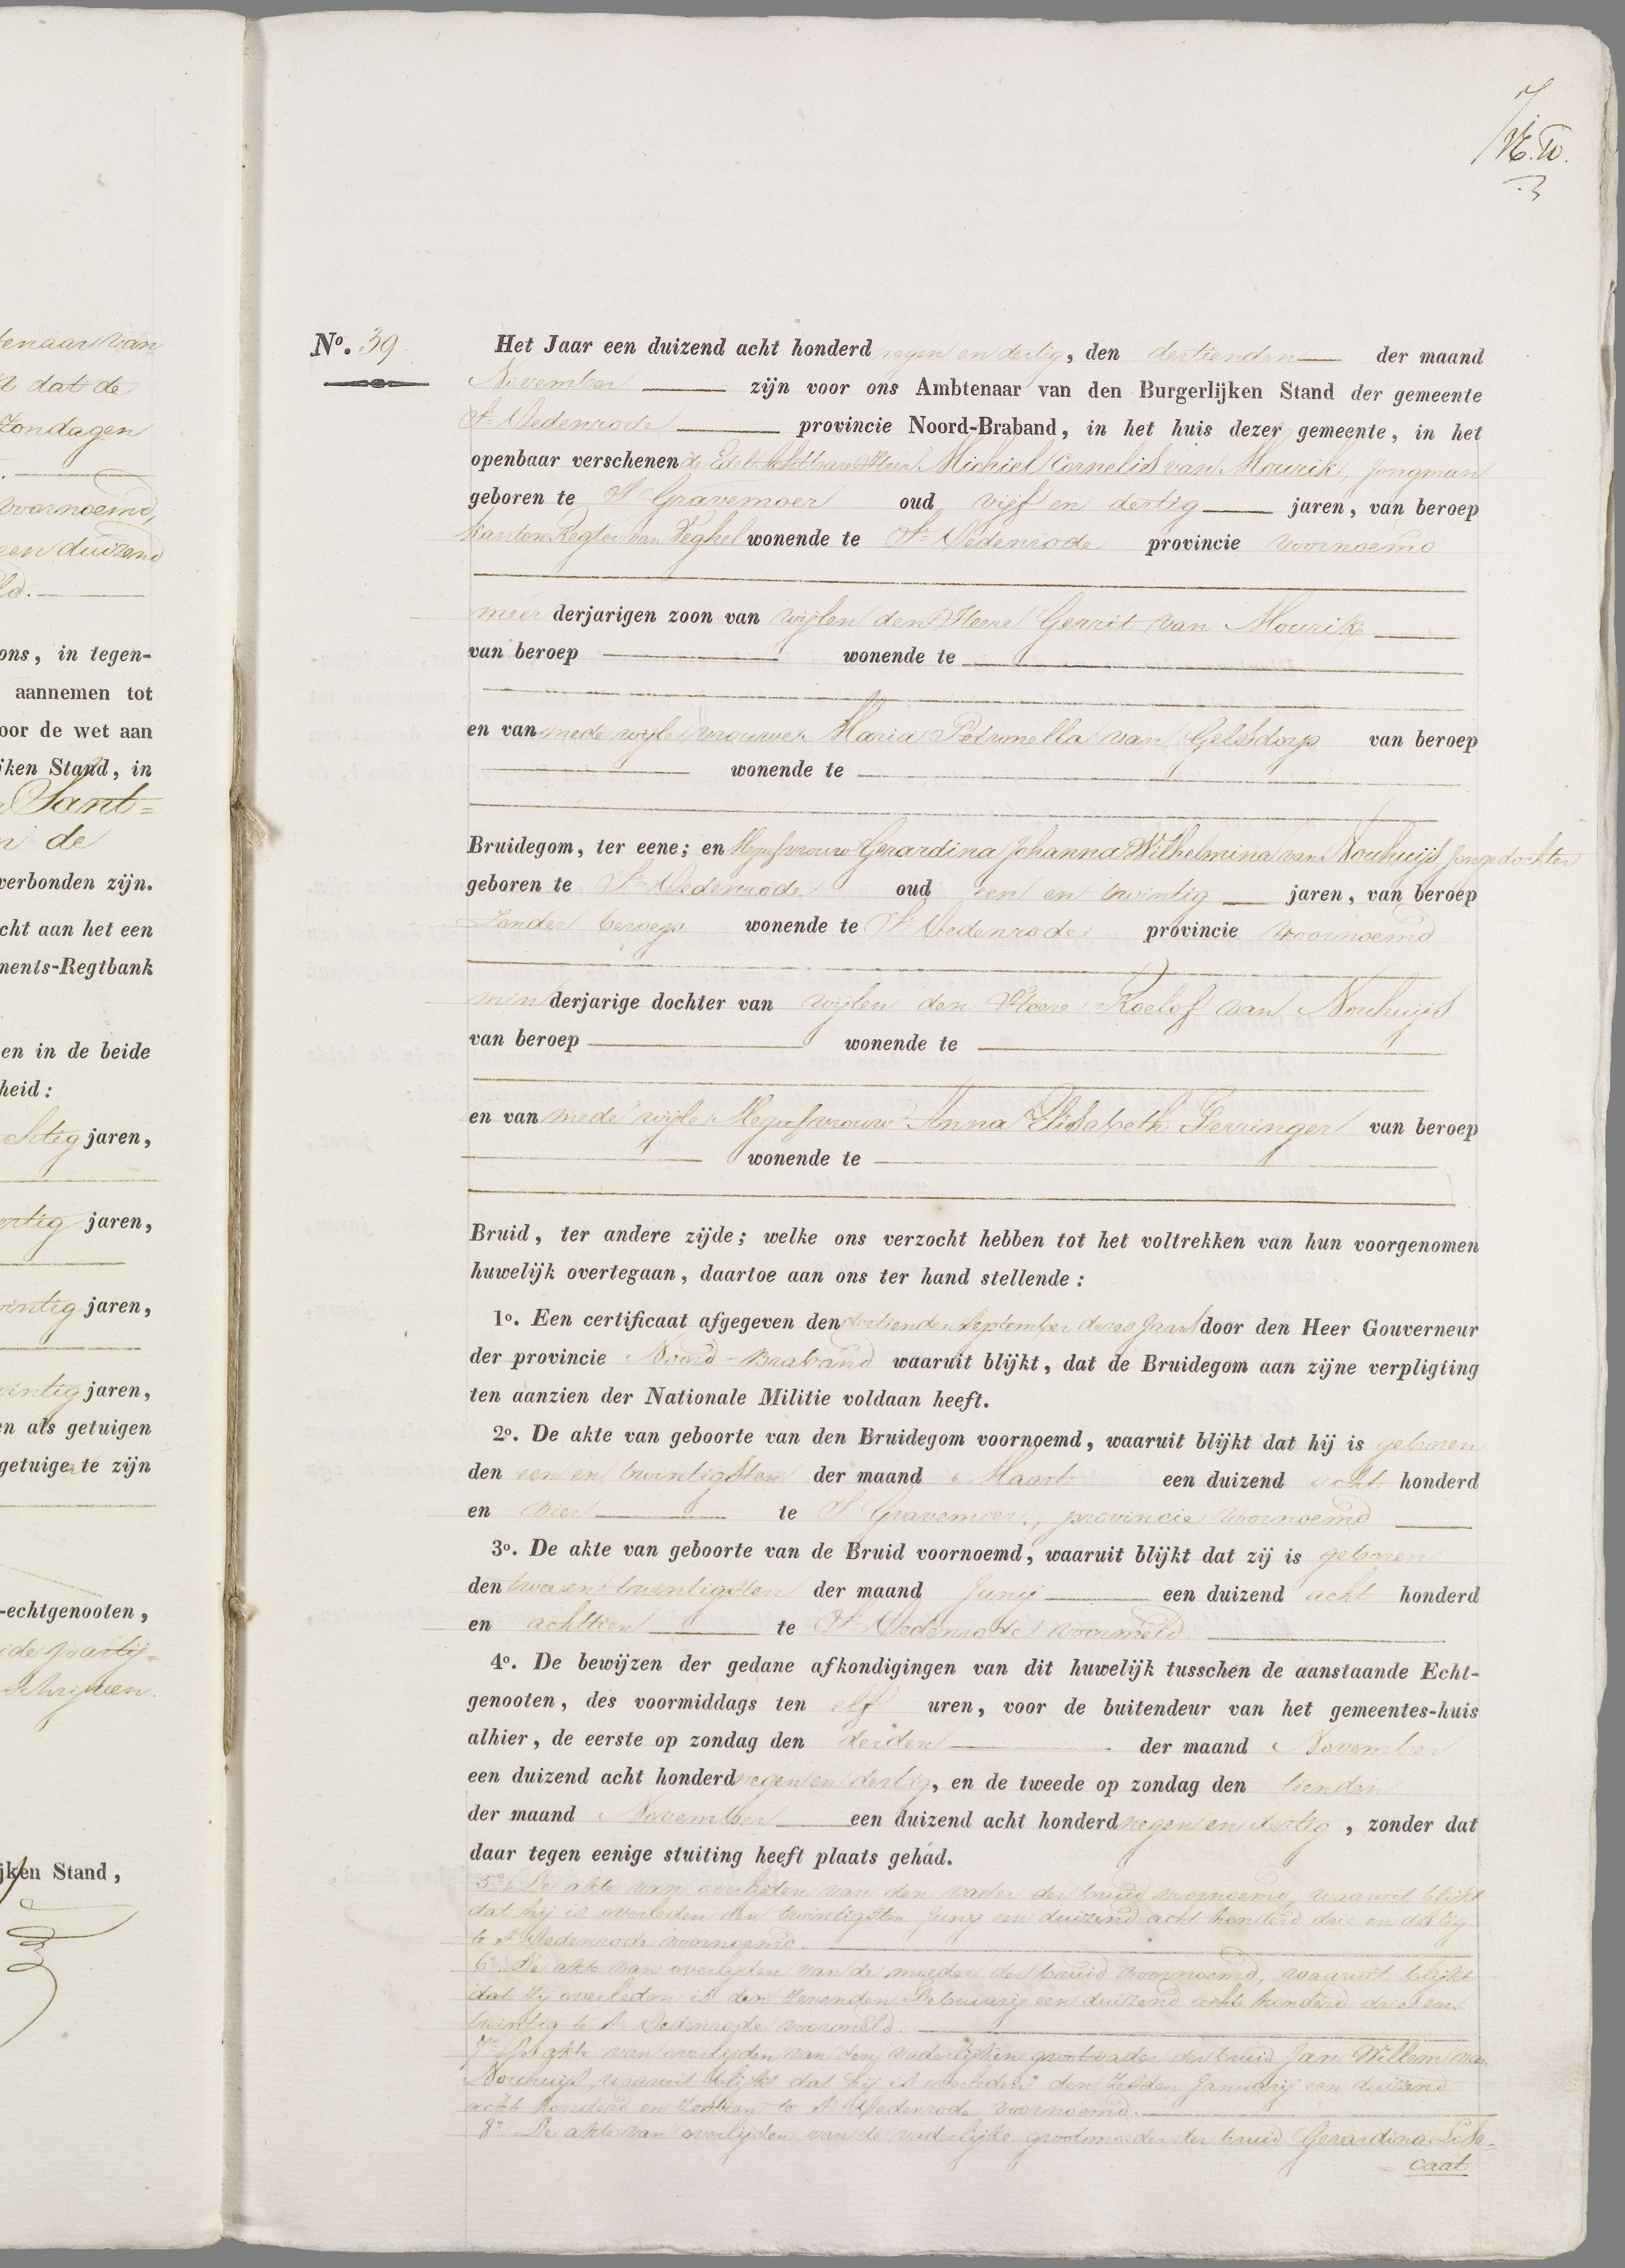 enaar van
dat de
Zondagen
voornoemd,
een duizend
ons, in tegen-
aannemen tot
oor de wet aan
ijken Stand, in
Sant=
de
verbonden zijn.
cht aan het een
ments-Regtbank
en in de beide
heid:
jaren,
jaren,
jaren,
jaren,
en als getuigen
getuige te zijn
-echtgenooten,
schrijven.
ijken Stand,
7
No. 39
Het Jaar een duizend acht honderd negen en dertig, den dertienden der maand
November zijn voor ons Ambtenaar van den Burgerlijken Stand der gemeente
St Oedenrode provincie Noord-Braband, in het huis dezer gemeente, in het
openbaar verschenen de Edelachtbare Heer Michiel Cornelis van Mourik, jongman
geboren te S Gravemoer oud vijf en dertig jaren, van beroep
Kantons Regter van Veghel wonende te St Oedenrode provincie voornoemd
meer derjarigen zoon van wijlen den Heere Gerrit van Mourik
van beroep wonende te
en van mede wijle vrouwe Maria Petronella van Gelsdorp van beroep
wonende te
Bruidegom, ter eene; en Mejufvrouw Gerardina Johanna Wilhelmina van Nouhuijs jongedochter
geboren te St Oedenrode oud een en twintig jaren, van beroep
Zonder beroep wonende te St Oedenrode provincie voornoemd
min derjarige dochter van wijlen den Heere Roelof van Nouhuijs
van beroep wonende te
en van mede wijle Mejufvrouw Anna Elisabeth Ferringer van beroep
wonende te
Bruid, ter andere zijde; welke ons verzocht hebben tot het voltrekken van hun voorgenomen
huwelijk overtegaan, daartoe aan ons ter hand stellende:
1o. Een certificaat afgegeven den dertienden September dezes Jaars door den Heer Gouverneur
der provincie Noord-Braband waaruit blijkt, dat de Bruidegom aan zijne verpligting
ten aanzien der Nationale Militie voldaan heeft.
2o. De akte van geboorte van den Bruidegom voornoemd, waaruit blijkt dat hij is geboren
den een en twintigsten der maand Maart een duizend acht honderd
en vier te S Gravemoer, provincie voornoemd
3o. De akte van geboorte van de Bruid voornoemd, waaruit blijkt dat zij is geboren
den twee en twintigsten der maand Junij een duizend acht honderd
en achttien te St Oedenrode voormeld
4o. De bewijzen der gedane afkondigingen van dit huwelijk tusschen de aanstaande Echt-
genooten, des voormiddags ten elf uren, voor de buitendeur van het gemeentes-huis
alhier, de eerste op zondag den derden der maand November
een duizend acht honderd negen en dertig, en de tweede op zondag den tienden
der maand November een duizend acht honderd negen en dertig, zonder dat
daar tegen eenige stuiting heeft plaats gehad.
5o De akte van overlijden van den vader der bruid voornoemd, waaruit blijkt
dat hij is overleden den twintigsten Junij een duizend acht honderd drie en dertig
te St Oedenrode voornoemd.
6o De akte van overlijden van de moeder der bruid voornoemd, waaruit blijkt
dat zij overleden is den zevenden Februarij een duizend acht honderd drie en
twintig te St Oedenrode voormeld.
7o De akte van overlijden van den vaderlijken grootvader der bruid Jan Willem van
Nouhuijs, waaruit blijkt dat hij is overleden den zesden Januarij een duizend
acht honderd en zestien te St Oedenrode voornoemd.
8o De akte van overlijden van de vaderlijke grootmoeder der bruid Gerardina Les=
= caat